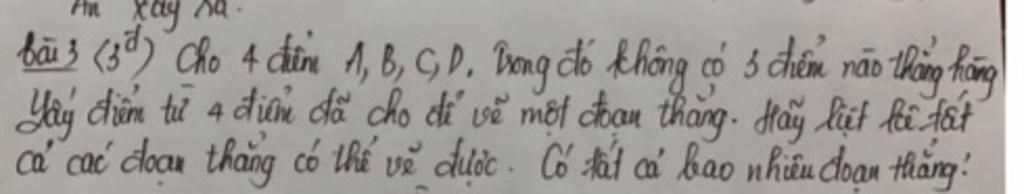 xảy ra.
Bài 3 (3đ) Cho 4 điểm A, B, C, D. Trong đó không có 3 điểm nào thẳng hàng
Lấy điểm từ 4 điểm đã cho để vẽ một đoạn thẳng. Hãy liệt kê tất
cả các đoạn thẳng có thể vẽ được. Có tất cả bao nhiêu đoạn thẳng?